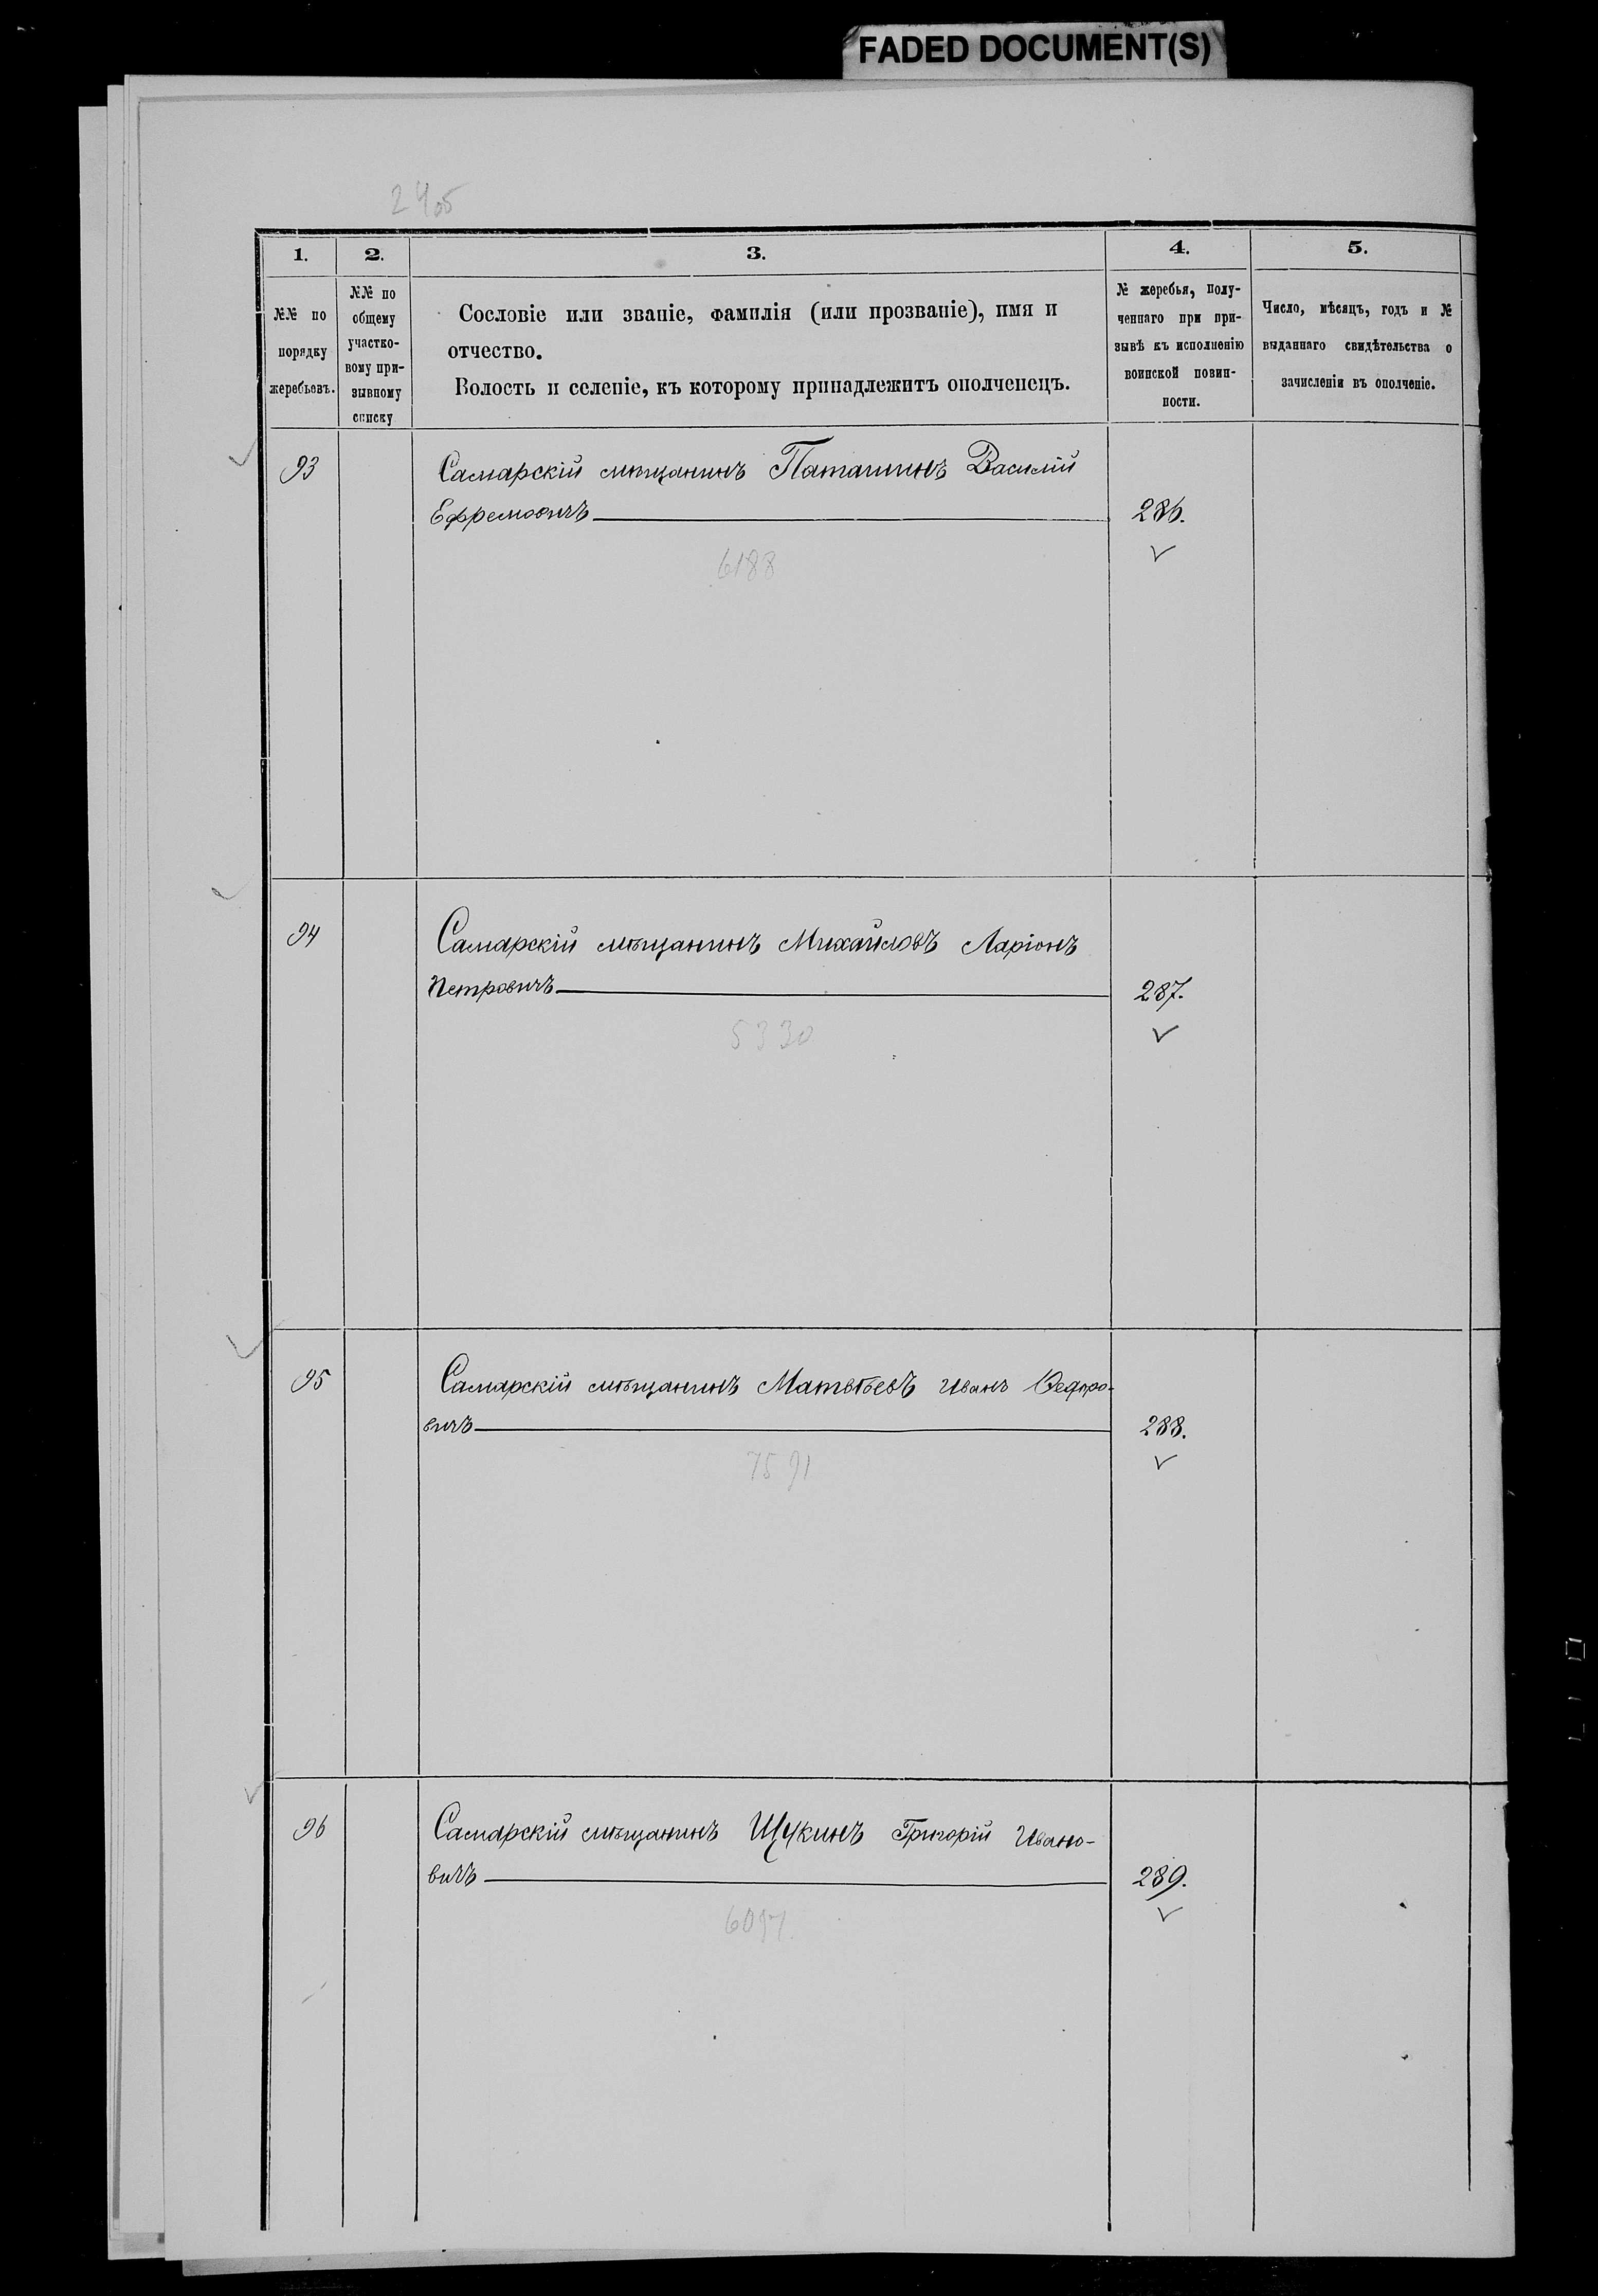 FADED DOCUMENT(S)
2405
1. 2. 3. 4. 5.
№№ по
порядку
жеребьевъ.
№№ по
общему
участко-
вому при-
зывному
списку
Сословіе или званіе, фамилія (или прозваніе), имя и
отчество.
Волость и селеніе, къ которому принадлежитъ ополченецъ.
№ жеребья, полу-
ченнаго при при-
зывѣ къ исполненію
воинской повин-
ности.
Число, мѣсяцъ, годъ и №
выданнаго свидѣтельства о
зачисленіи въ ополченіе.
93 Самарскій мѣщанинъ Паташинъ Василій
Ефремовичъ 286.
6188
94 Самарскій мѣщанинъ Михайловъ Ларіонъ
Петровичъ 287.
5330
95 Самарскій мѣщанинъ Матвѣевъ Иванъ Ѳедоро-
вичъ 288.
7591
96 Самарскій мѣщанинъ Щукинъ Григорій Ивано-
вичъ 289.